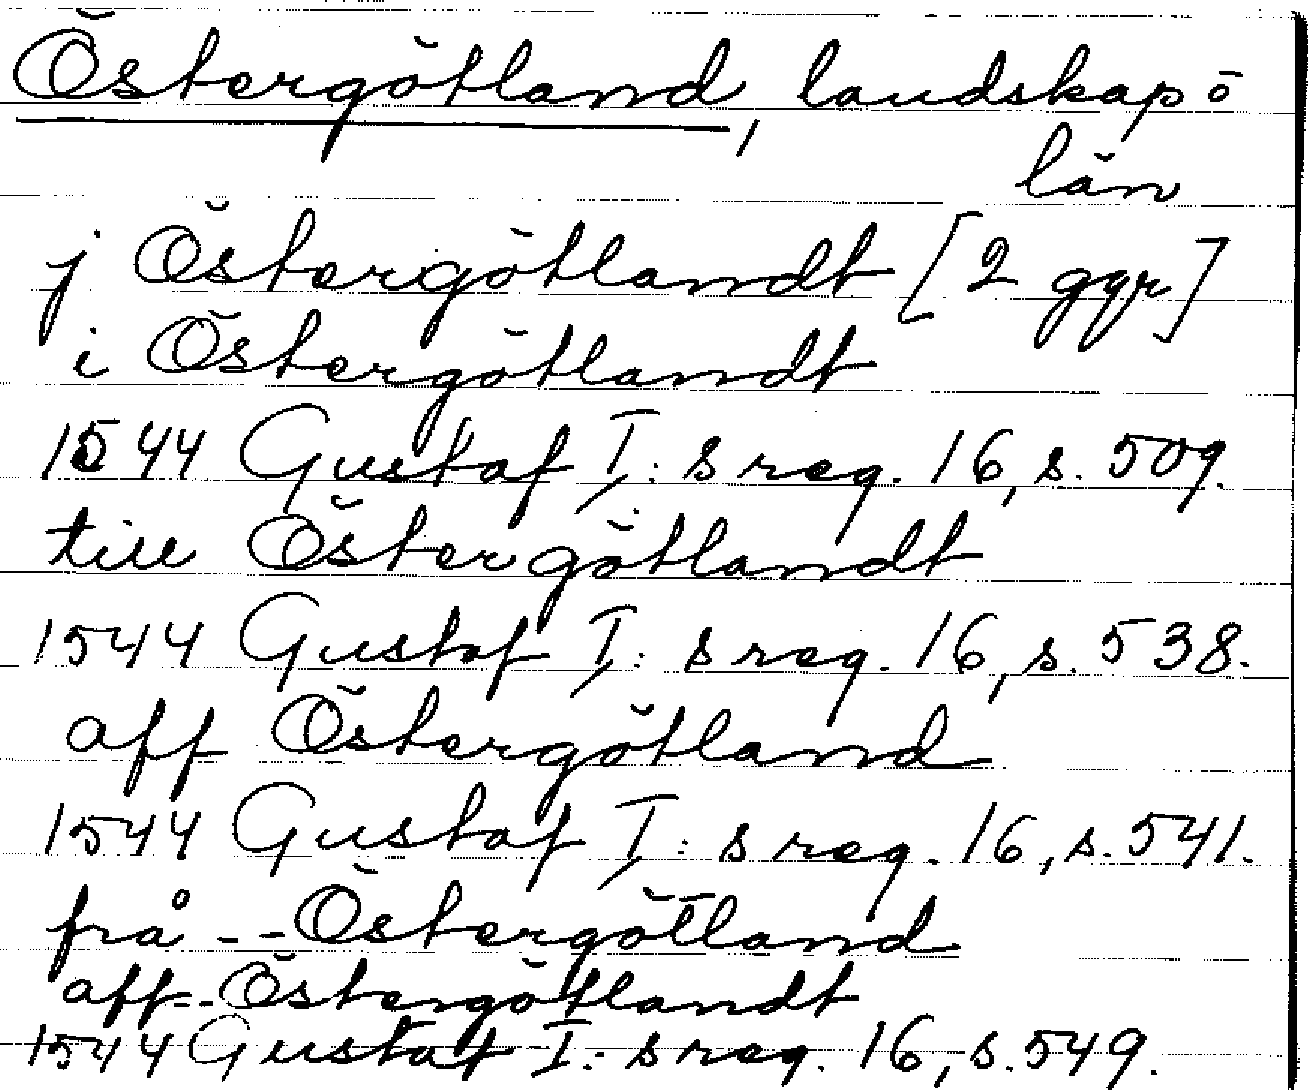 Östergötland, landskap o
län
j Östergötlandt [2 ggr]
i Östergötlandt
1544 Gustaf I:s reg. 16, s. 509.
till Östergötlandt
1544 Gustaf I:s reg. 16, s. 538.
aff Östergötland
1544 Gustaf I:s reg. 16, s. 541.
frå -- Östergötland
aff -- Östergötlandt
1544 Gustaf I:s reg. 16, s. 549.